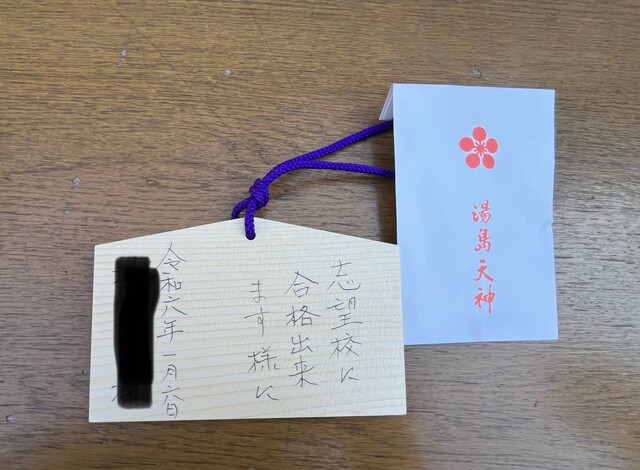 湯島天神
志望校に
合格出来
ます様に
令和六年一月六日